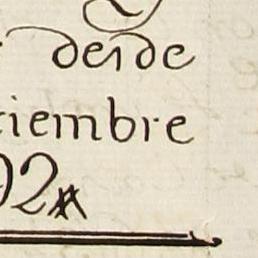 desde
ciembre
92